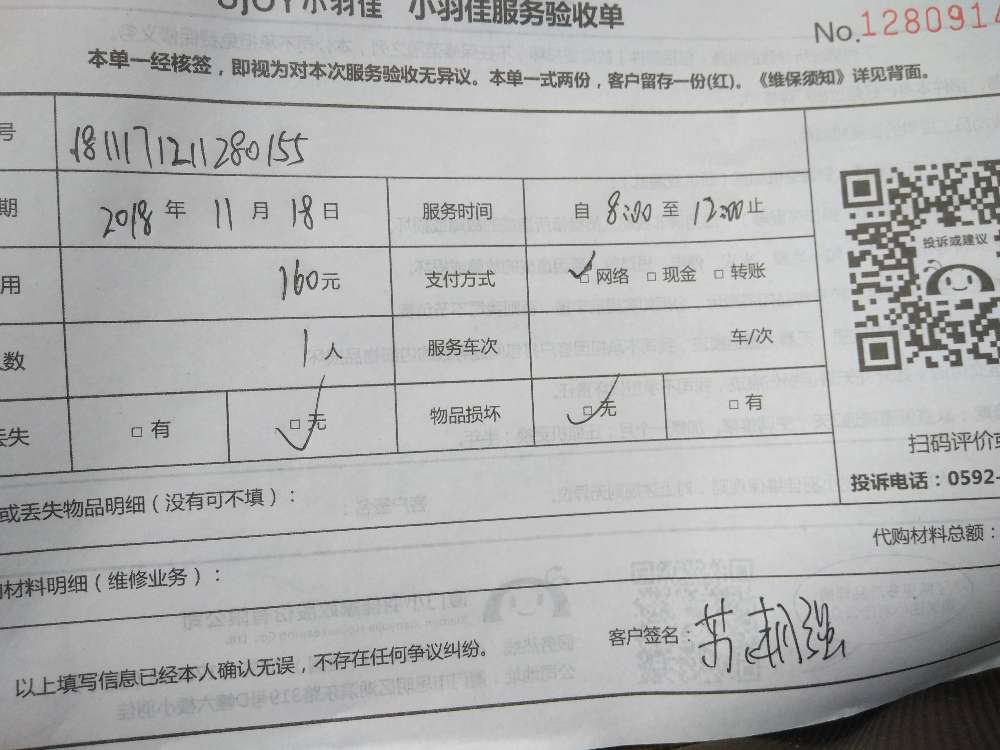 UJOY小羽佳 小羽佳服务验收单
No.128091
本单一经核签，即视为对本次服务验收无异议。本单一式两份，客户留存一份(红)。《维保须知》详见背面。
号 1811171211280155
期 2018 年 11 月 18 日 服务时间 自 8:00 至 12:00 止
用 160元 支付方式 ☑ 网络 □ 现金 □ 转账
人数 1 人 服务车次 车/次
丢失 □ 有 ☑ 无 物品损坏 ☑ 无 □ 有
投诉或建议
扫码评价或
投诉电话：0592-
或丢失物品明细（没有可不填）：
代购材料总额：
材料明细（维修业务）：
以上填写信息已经本人确认无误，不存在任何争议纠纷。 客户签名：苏 强